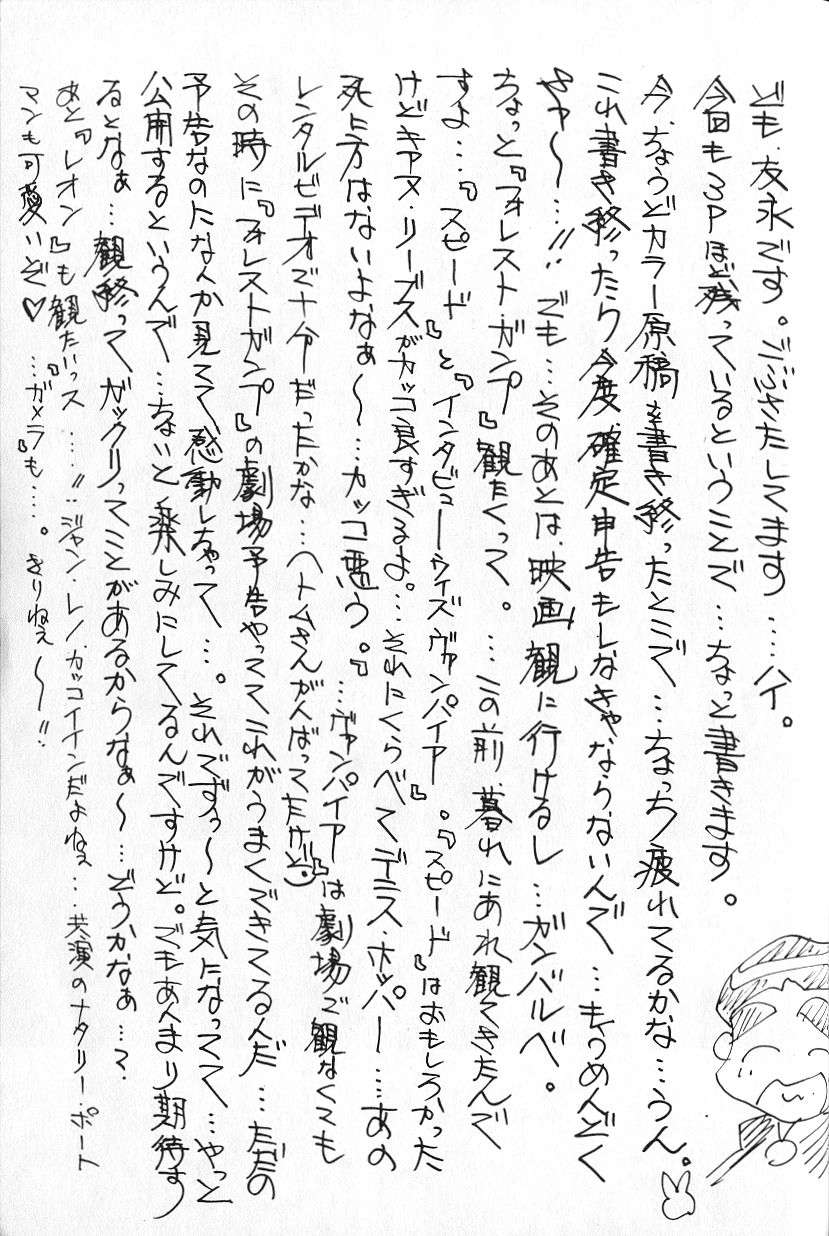 ども、友永です。ごぶさたしてます……ハイ。
今回も3Pほど残っているということで…ちょっと書きます。
今、ちょうどカラー原稿を書き終ったとこで…ちょっち疲れてるかな…うん。
これ書き終ったら今度、確定申告もしなきゃならないんで…もうめんどく
せァ〜…!! でも…そのあとは、映画観に行けるし…ガンバルベ。
ちょっと『フォレスト・ガンプ』観たくって。…この前、暮れにあれ観てきたんで
すよ…『スピード』と『インタビュー・ウィズ・ヴァンパイア』。『スピード』はおもしろかった
けどキアヌ・リーブスがカッコ良すぎるよ。…それにくらべてデニス・ホッパー……あの
死に方はないよなぁ〜…カッコ悪う。『…ヴァンパイア』は劇場で観なくても
レンタルビデオで十分だったかな…ヘトムさんがんばってたけど
その時に『フォレストガンプ』の劇場予告やっててこれがうまくできてるんだ…ただの
予告なのになんか見てて、感動しちゃって…。それでずぅ〜と気になってて…やっと
公開するというんで…ちょいと楽しみにしてるんですけど。でもあんまり期待す
るとなぁ…観終ってガックリってことがあるからなぁ〜…どうかなぁ…て、
あと『レオン』も観たいっス……!! ジャン・レノ、カッコイインだよねぇ…共演のナタリー・ポート
マンも可愛いぞ♡ …『ガメラ』も……。きりねぇ〜!!